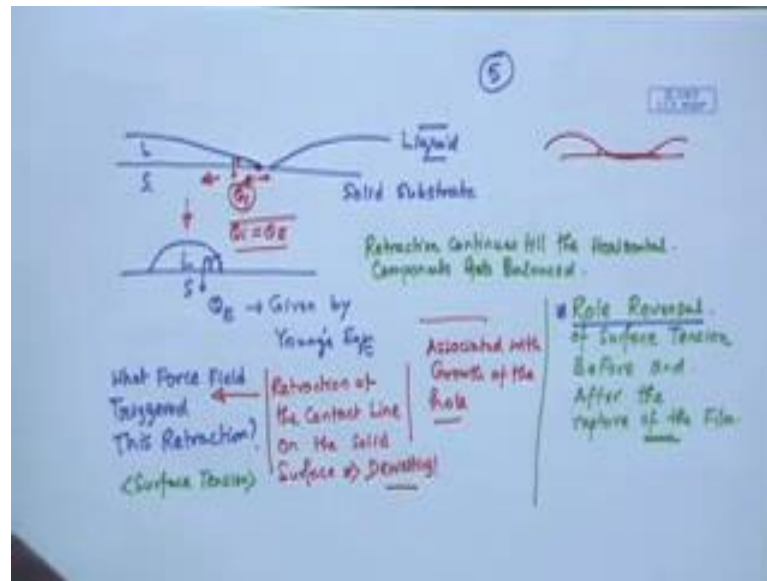 5
L
S
Liquid
Solid Substrate
θi = θE
L
S
θE → Given by
Young's Eqn
Retraction Continues till the Horizontal
Components Gets Balanced.
What Force Field
Triggered
This Retraction?
(Surface Tension)
Retraction of
the Contact Line
on the Solid
Surface ⇒ Dewetting!
Associated with
Growth of the
hole
Role Reversal
of Surface Tension
Before and
After the
rupture of the Film